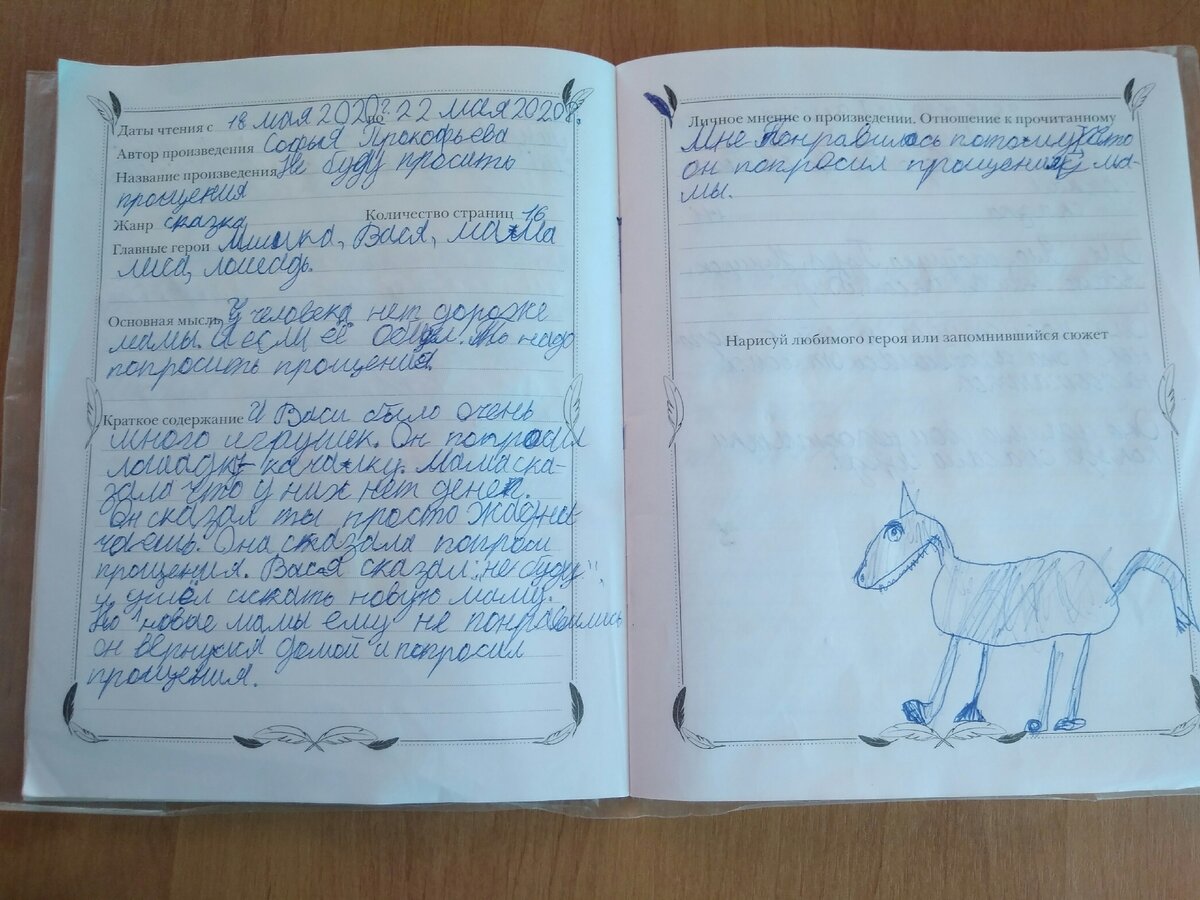 Даты чтения с 18 мая 2020г. по 22 мая 2020г.
Автор произведения Софья Прокофьева
Название произведения Не буду просить
прощения
Жанр сказка Количество страниц 16
Главные герои Мишка, Вася, мама
лиса, лошадь.
Основная мысль У человека нет дороже
мамы. А если её обидел. То надо
попросить прощения.
Краткое содержание У Васи было очень
много игрушек. Он попросил
лошадку-качалку. Мама ска-
зала что у них нет денег.
Он сказал ты просто жадни-
чаешь. Она сказала попроси
прощения. Вася сказал: "не буду"
и ушёл искать новую маму.
Но новые мамы ему не понравились
он вернулся домой и попросил
прощения.
Личное мнение о произведении. Отношение к прочитанному
Мне понравилось потому что
он попросил прощения у ма-
мы.
Нарисуй любимого героя или запомнившийся сюжет